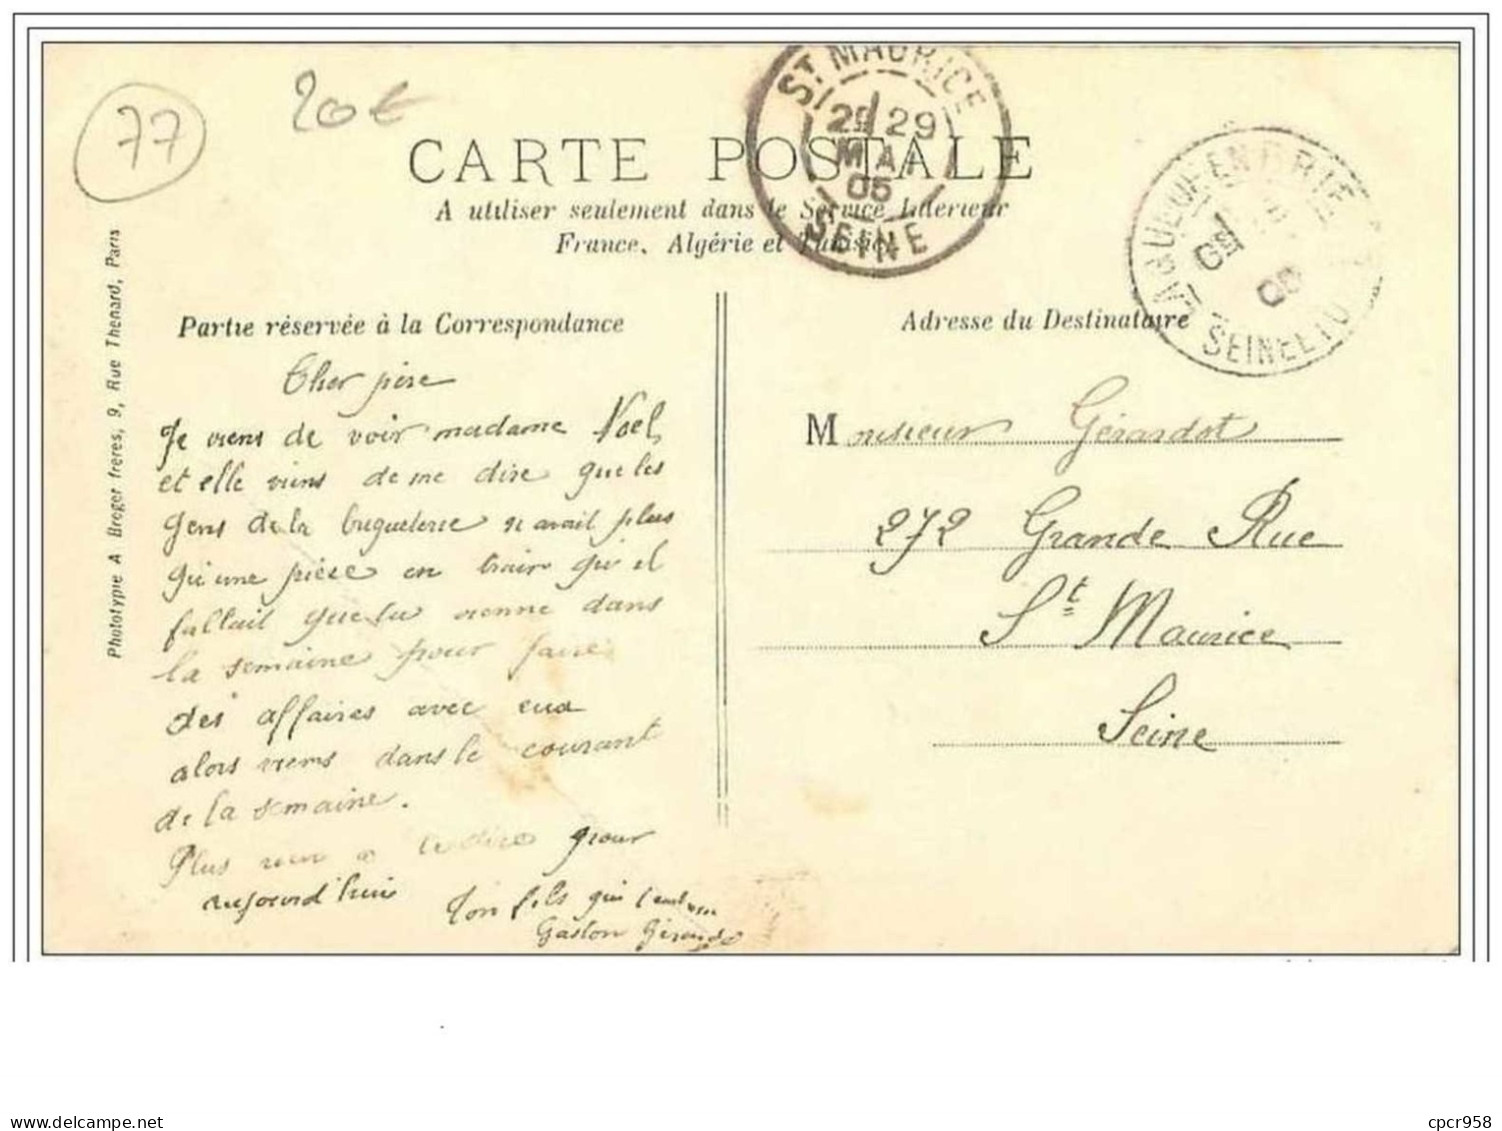 77
20€
CARTE POSTALE
A utiliser seulement dans le Service Interieur
France, Algérie et Tunisie
ST MAURICE
2E 29
MAI
05
SEINE
EN BRIE
SEINE ET
Phototypie A Breger freres, 9, Rue Thenard, Paris
Partie réservée à la Correspondance
Cher père
Je viens de voir madame Noel
et elle viens de me dire que les
gens de la briqueterie n'avait plus
qu'une pièce en train qu'il
fallait que tu vienne dans
la semaine pour faire
des affaires avec eux
alors viens dans le courant
de la semaine.
Plus rien a te dire pour
aujourd'hui
Ton fils qui t'embrasse
Gaston Gérardot
Adresse du Destinataire
Monsieur Gérardot
272 Grande Rue
St Maurice
Seine
cpcr958